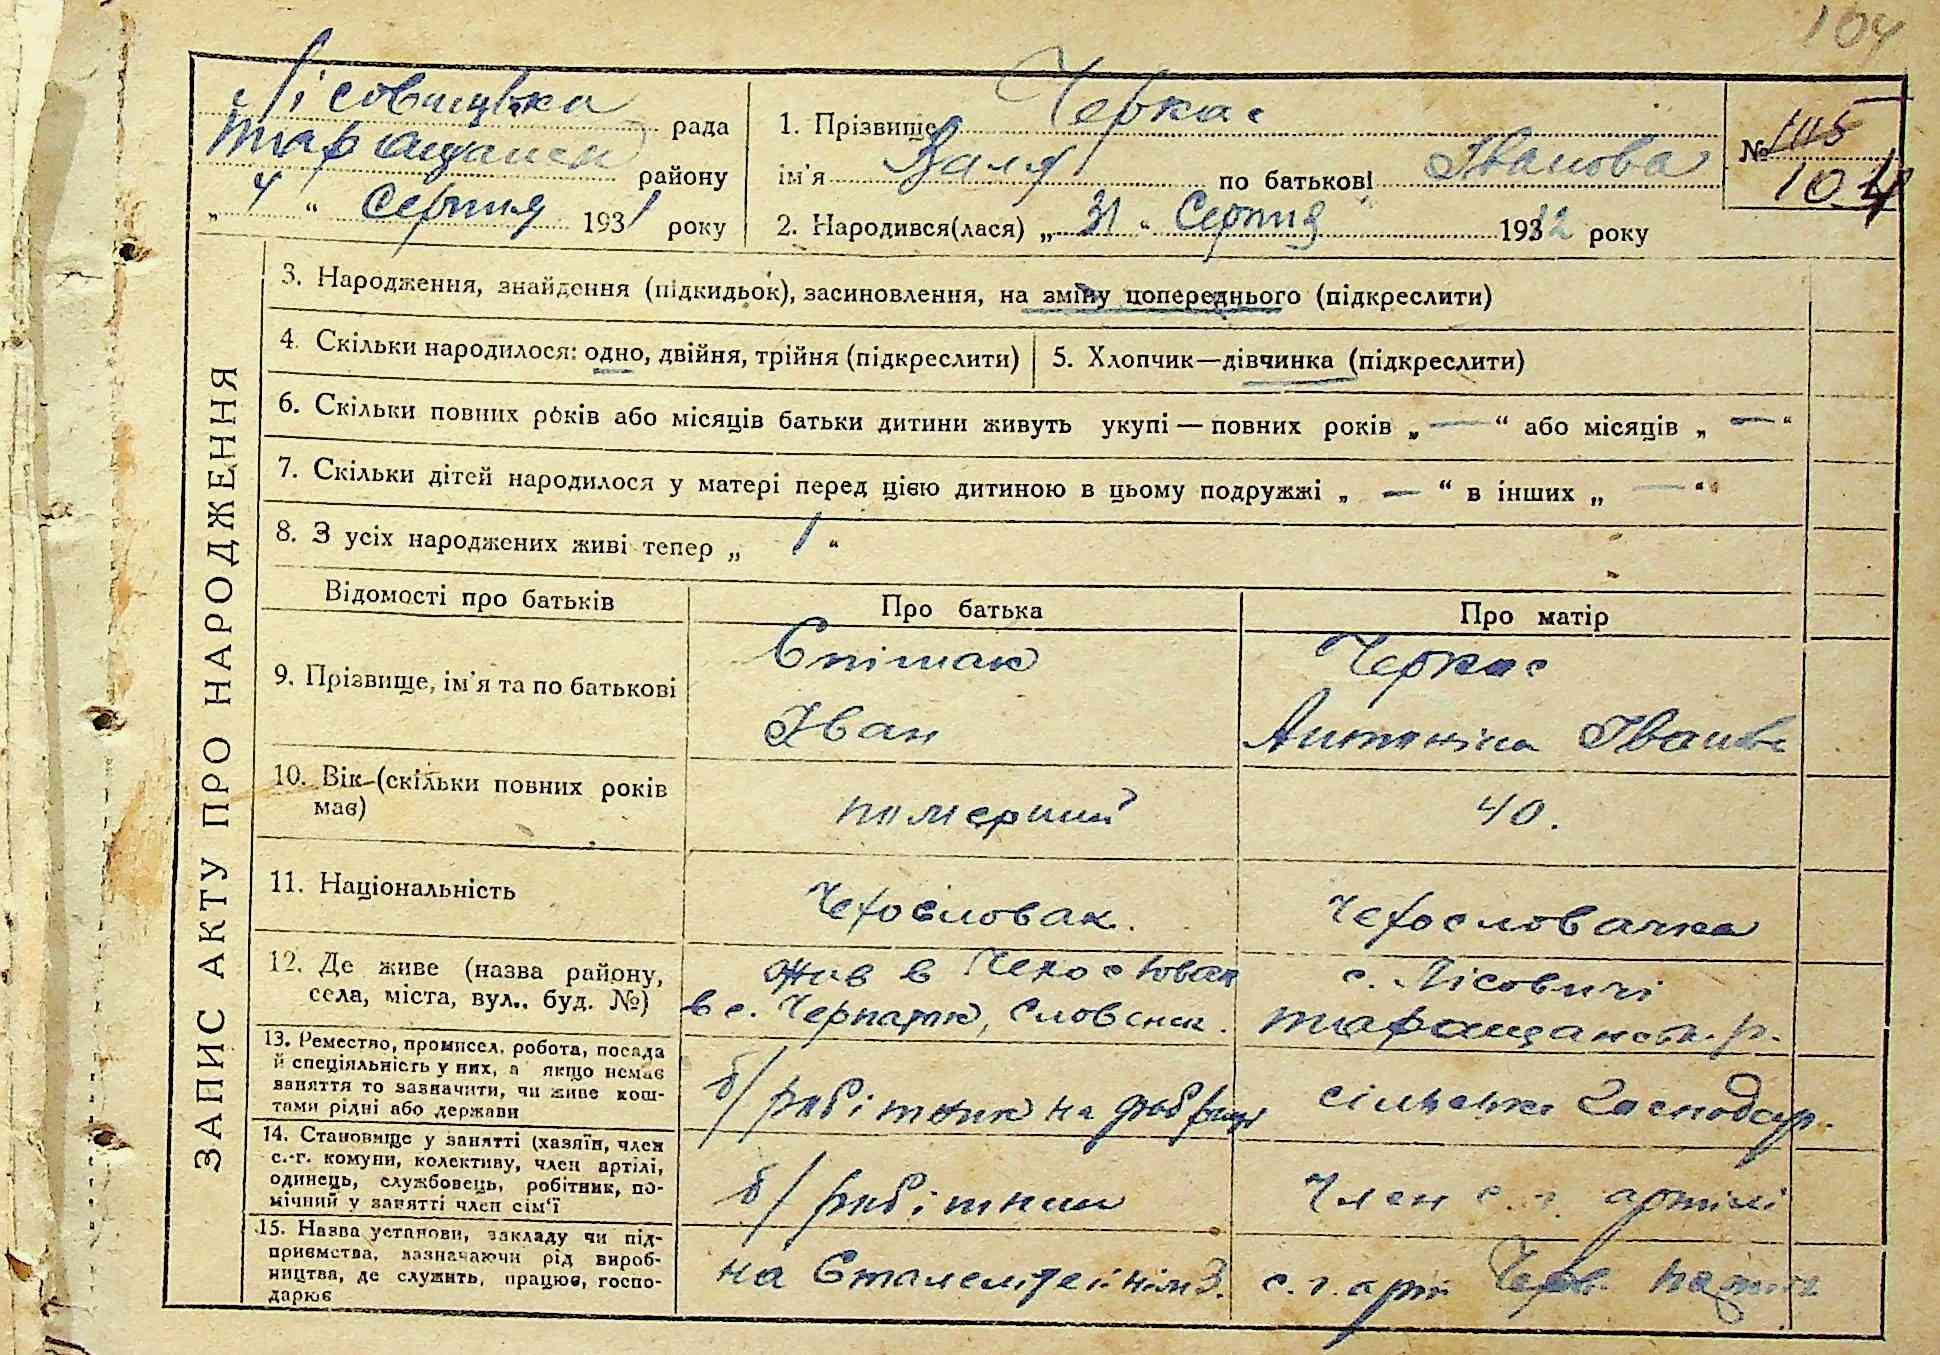 104
Лісовицька рада
Таращанськ району
„ 4 “ Серпня 1931 року
1. Прізвище Черкас
ім'я Валя по батькові Іванова
2. Народився(лася) „ 31 “ Серпня 1932 року
№ 105
104
ЗАПИС АКТУ ПРО НАРОДЖЕННЯ
3. Народження, знайдення (підкидьок), засиновлення, на зміну попереднього (підкреслити)
4. Скільки народилося: одно, двійня, трійня (підкреслити)
5. Хлопчик—дівчинка (підкреслити)
6. Скільки повних років або місяців батьки дитини живуть укупі — повних років „ — “ або місяців „ — “
7. Скільки дітей народилося у матері перед цією дитиною в цьому подружжі „ — “ в інших „ — “
8. З усіх народжених живі тепер „ 1 “
Відомості про батьків
Про батька
Про матір
9. Прізвище, ім'я та по батькові
Спішак
Іван
Черкас
Антоніна Іванов
10. Вік (скільки повних років
має)
померший
40.
11. Національність
Чехословак.
Чехословачка
12. Де живе (назва району,
села, міста, вул., буд. №)
жив в Чехословак
в с. Словенск.
с. Лісовичі
Таращанськ. р.
13. Ремество, промисел, робота, посада
й спеціяльність у них, а якщо немає
заняття то зазначити, чи живе кош-
тами рідні або держави
б/ робітник на фабриці
сільське господар.
14. Становище у занятті (хазяїн, член
с.-г. комуни, колективу, член артілі,
одинець, службовець, робітник, по-
мічний у занятті член сім'ї
б/ робітник
Член с. г. артілі
15. Назва установи, закладу чи під-
приємства, зазначаючи рід вироб-
ництва, де служить, працює, госпо-
дарює
на З.
с. г. арт Черв.